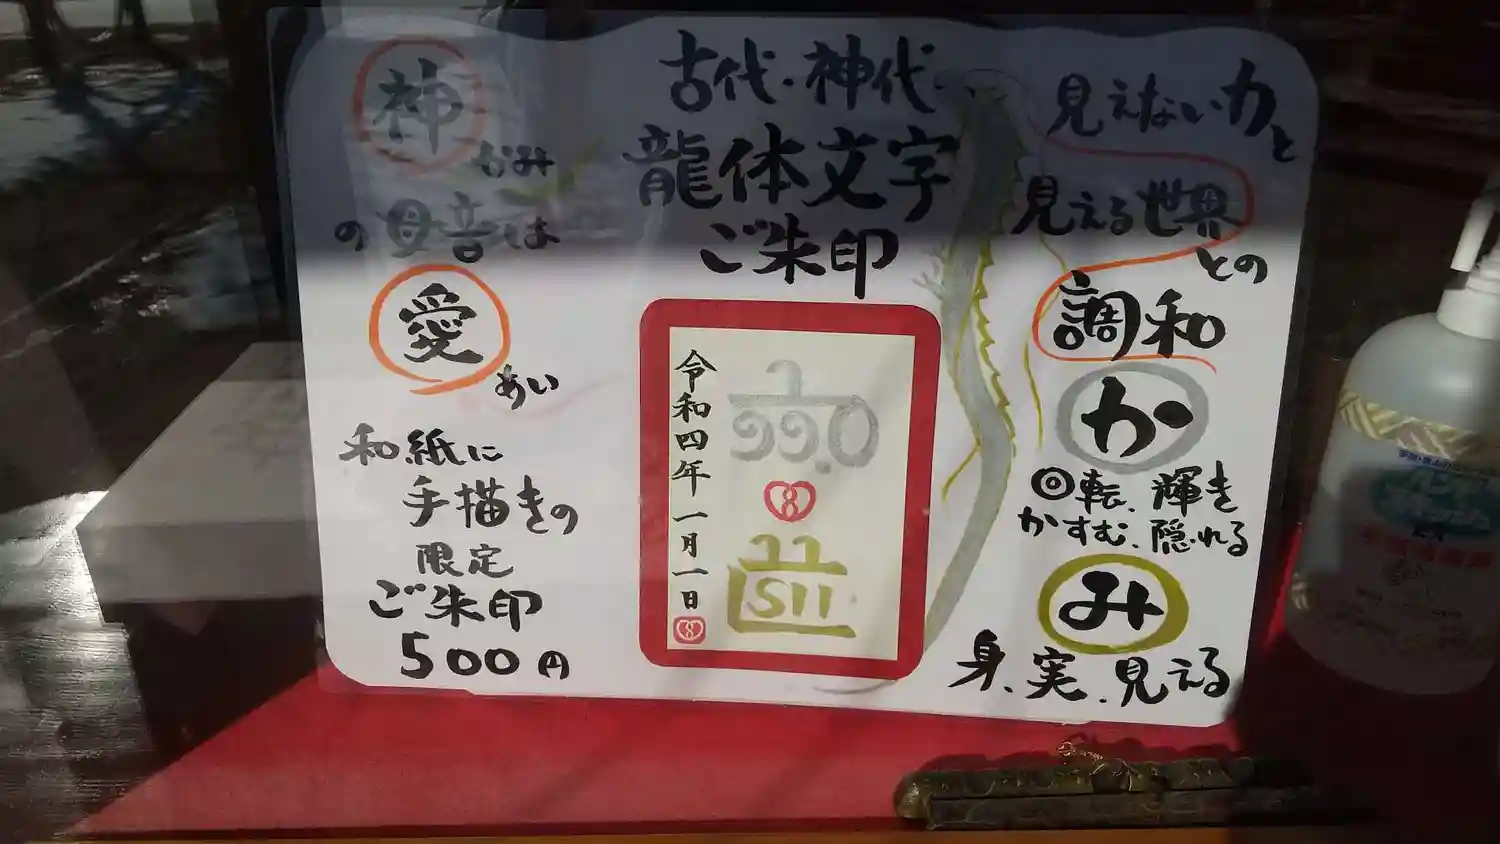 古代・神代・
龍体文字
ご朱印
見えない力と
見える世界
との
調和
か
◎転、輝き
かすむ、隠れる
み
身、実、見える
令和四年一月一日
神
かみ
の母音は
愛
あい
和紙に
手描きの
限定
ご朱印
500円